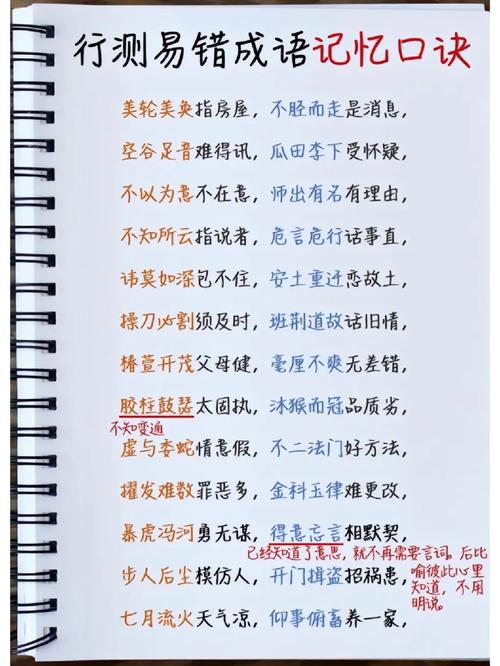 行测易错成语记忆口诀
美轮美奂指房屋，不胫而走是消息，
空谷足音难得讯，瓜田李下受怀疑，
不以为意不在意，师出有名有理由，
不知所云指说者，危言危行话事直，
讳莫如深包不住，安土重迁恋故土，
操刀必割须及时，班荆道故话旧情，
椿萱开茂父母健，毫厘不爽无差错，
胶柱鼓瑟太固执，沐猴而冠品质劣，
不知变通
虚与委蛇情意假，不二法门好方法，
擢发难数罪恶多，金科玉律难更改，
暴虎冯河勇无谋，得意忘言相默契，
已经知道了意思，就不再需要言词。后比
喻彼此心里
知道，不用
明说。
步人后尘模仿人，开门揖盗招祸患，
七月流火天气凉，仰事俯畜养一家，